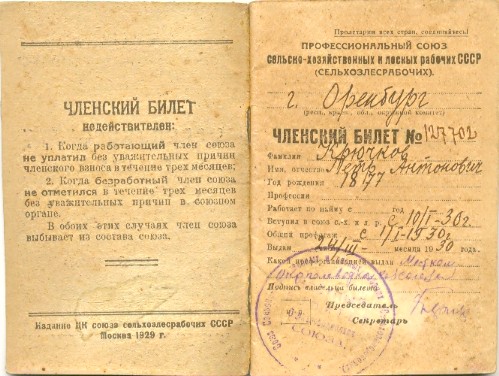 ЧЛЕНСКИЙ БИЛЕТ
недействителен:
1. Когда работающий член союза
не уплатил без уважительных причин
членского взноса в течение трех месяцев;
2. Когда безработный член союза
не отметился в течение трех месяцев
без уважительных причин в союзном
органе.
В обоих этих случаях член союза
выбывает из состава союза.
Издание ЦК союза сельхозлесрабочих СССР
Москва 1929 г.
Пролетарии всех стран, соединяйтесь!
ПРОФЕССИОНАЛЬНЫЙ СОЮЗ
сельско-хозяйственных и лесных рабочих СССР
(СЕЛЬХОЗЛЕСРАБОЧИХ).
г. Оренбург
ЧЛЕНСКИЙ БИЛЕТ № 127702
Фамилия Крючков
Имя, отчество Петр Антонович
Год рождения 1877
Профессия
Работает по найму с год
Вступил в союз с.-х. и л. р. с 10/I-30 г.
Общий профстаж с 1/I-1930 г.
Выдан месяца 1930 года.
Какой профорганизацией выдан
Подпись владельца билета
Председатель
Секретарь
СОЮЗА